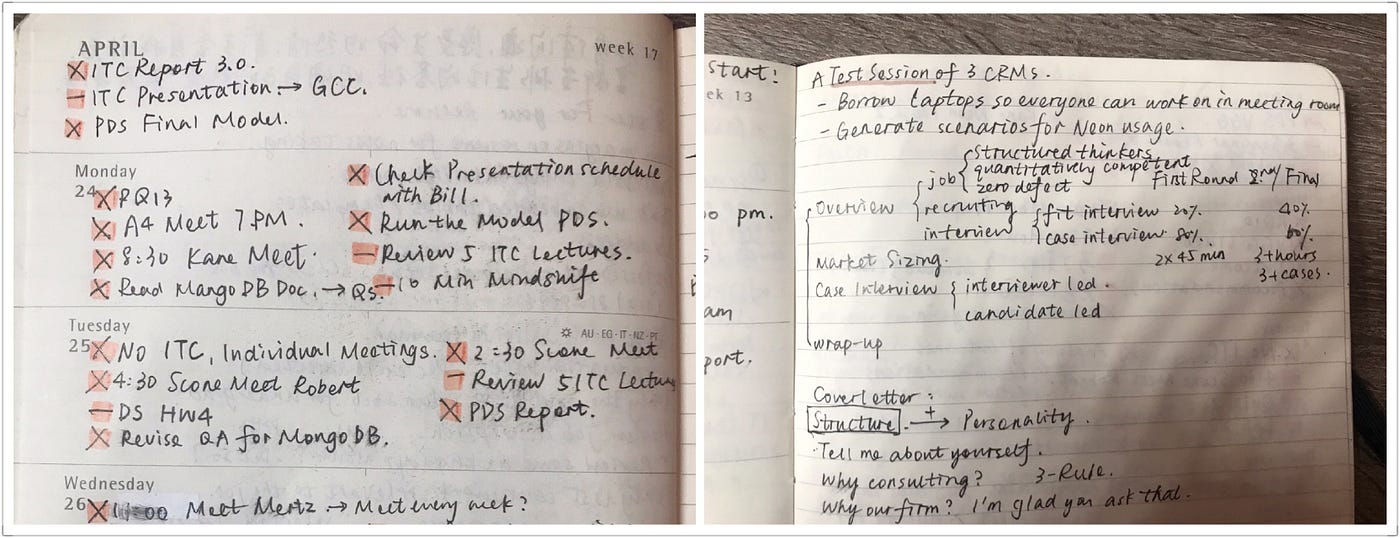 APRIL
week 17
X ITC Report 3.0.
— ITC Presentation → GCC.
X PDS Final Model.
Monday
24
X PQ13
X A4 Meet 7 PM.
X 8:30 Kane Meet.
X Read Mango DB Doc. → QS.
X Check Presentation schedule
with Bill.
X Run the Model PDS.
— Review 5 ITC Lectures.
— 10 Min Mindshift
Tuesday
25
AU·EG·IT·NZ·PT
X No ITC, Individual Meetings.
X 4:30 Scone Meet Robert
— DS HW4
X Revise QA for Mongo DB.
X 2:30 Scone Meet
— Review 5 ITC Lectur
X PDS Report.
Wednesday
26
X 11:00 Meet Mertz → Meet every week?
start!
ek 13
pm.
am
port.
A Test Session of 3 CRMs.
- Borrow laptops so everyone can work on in meeting room
- Generate scenarios for Neon usage.
Overview
job
structured thinkers
quantitatively competent
zero defect
recruiting
interview
First Round 2nd/Final
fit interview 20% 40%
case interview 80% 60%
2x45 min 3+hours
3+cases.
Market Sizing.
Case Interview
interviewer led.
candidate led
wrap-up
Cover letter:
Structure. + → Personality.
Tell me about yourself.
Why consulting? 3-Rule.
Why our firm? I'm glad you ask that.